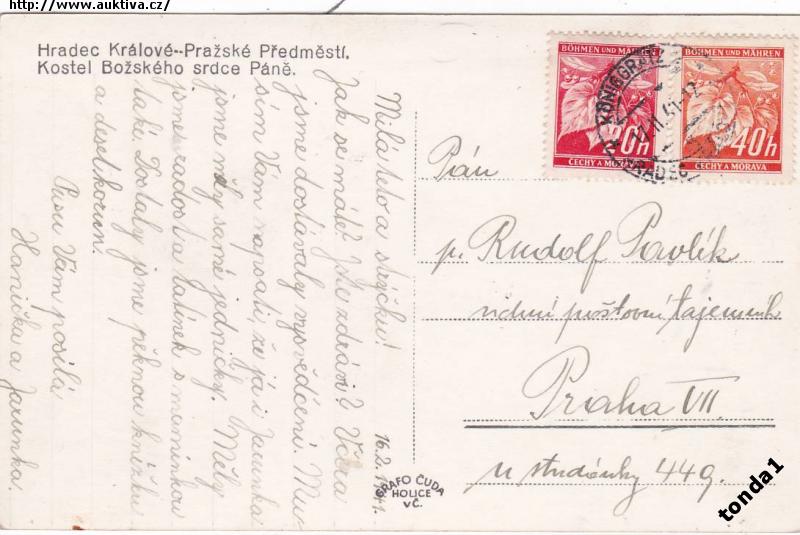 http://www.auktiva.cz/
Hradec Králové--Pražské Předměstí.
Kostel Božského srdce Páně.
16.2.1941.
Milá teto a strýčku!
Jak se máte? Jste zdrávi? Včera
jsme dostávaly vysvědčení. Mu-
sím Vám napsati, že já i Jarunka
jsme měly samé jedničky. Měly
jsme radost a tatínek s maminkou
také. Dostaly jsme pěknou knížku
a deset korun.
Pusu Vám posílá
Hanička a Jarunka.
BÖHMEN UND MÄHREN
20h
ČECHY A MORAVA
BÖHMEN UND MÄHREN
40h
ČECHY A MORAVA
KÖNIGGRÄTZ
HRADEC
Pán
p. Rudolf Pavlík
vrchní poštovní tajemník
Praha VII.
u studánky 449.
GRAFO ČUDA
HOLICE
V.Č.
tonda1